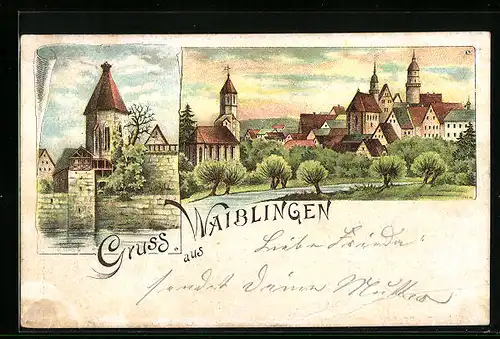 Gruss aus WAIBLINGEN
Liebe Frieda
sendet Deine Mutter